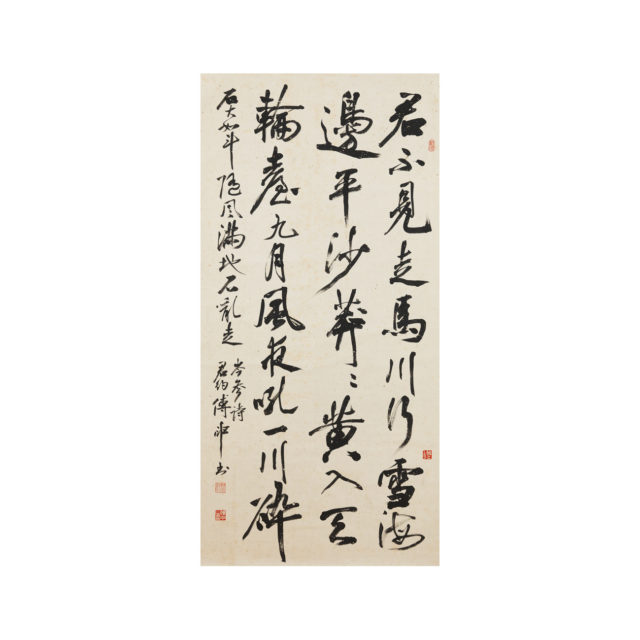 君不見走馬川行雪海
邊平沙莽〻黃入天
輪臺九月風夜吼一川碎
石大如斗隨風滿地石亂走
岑參詩
君約傅申書